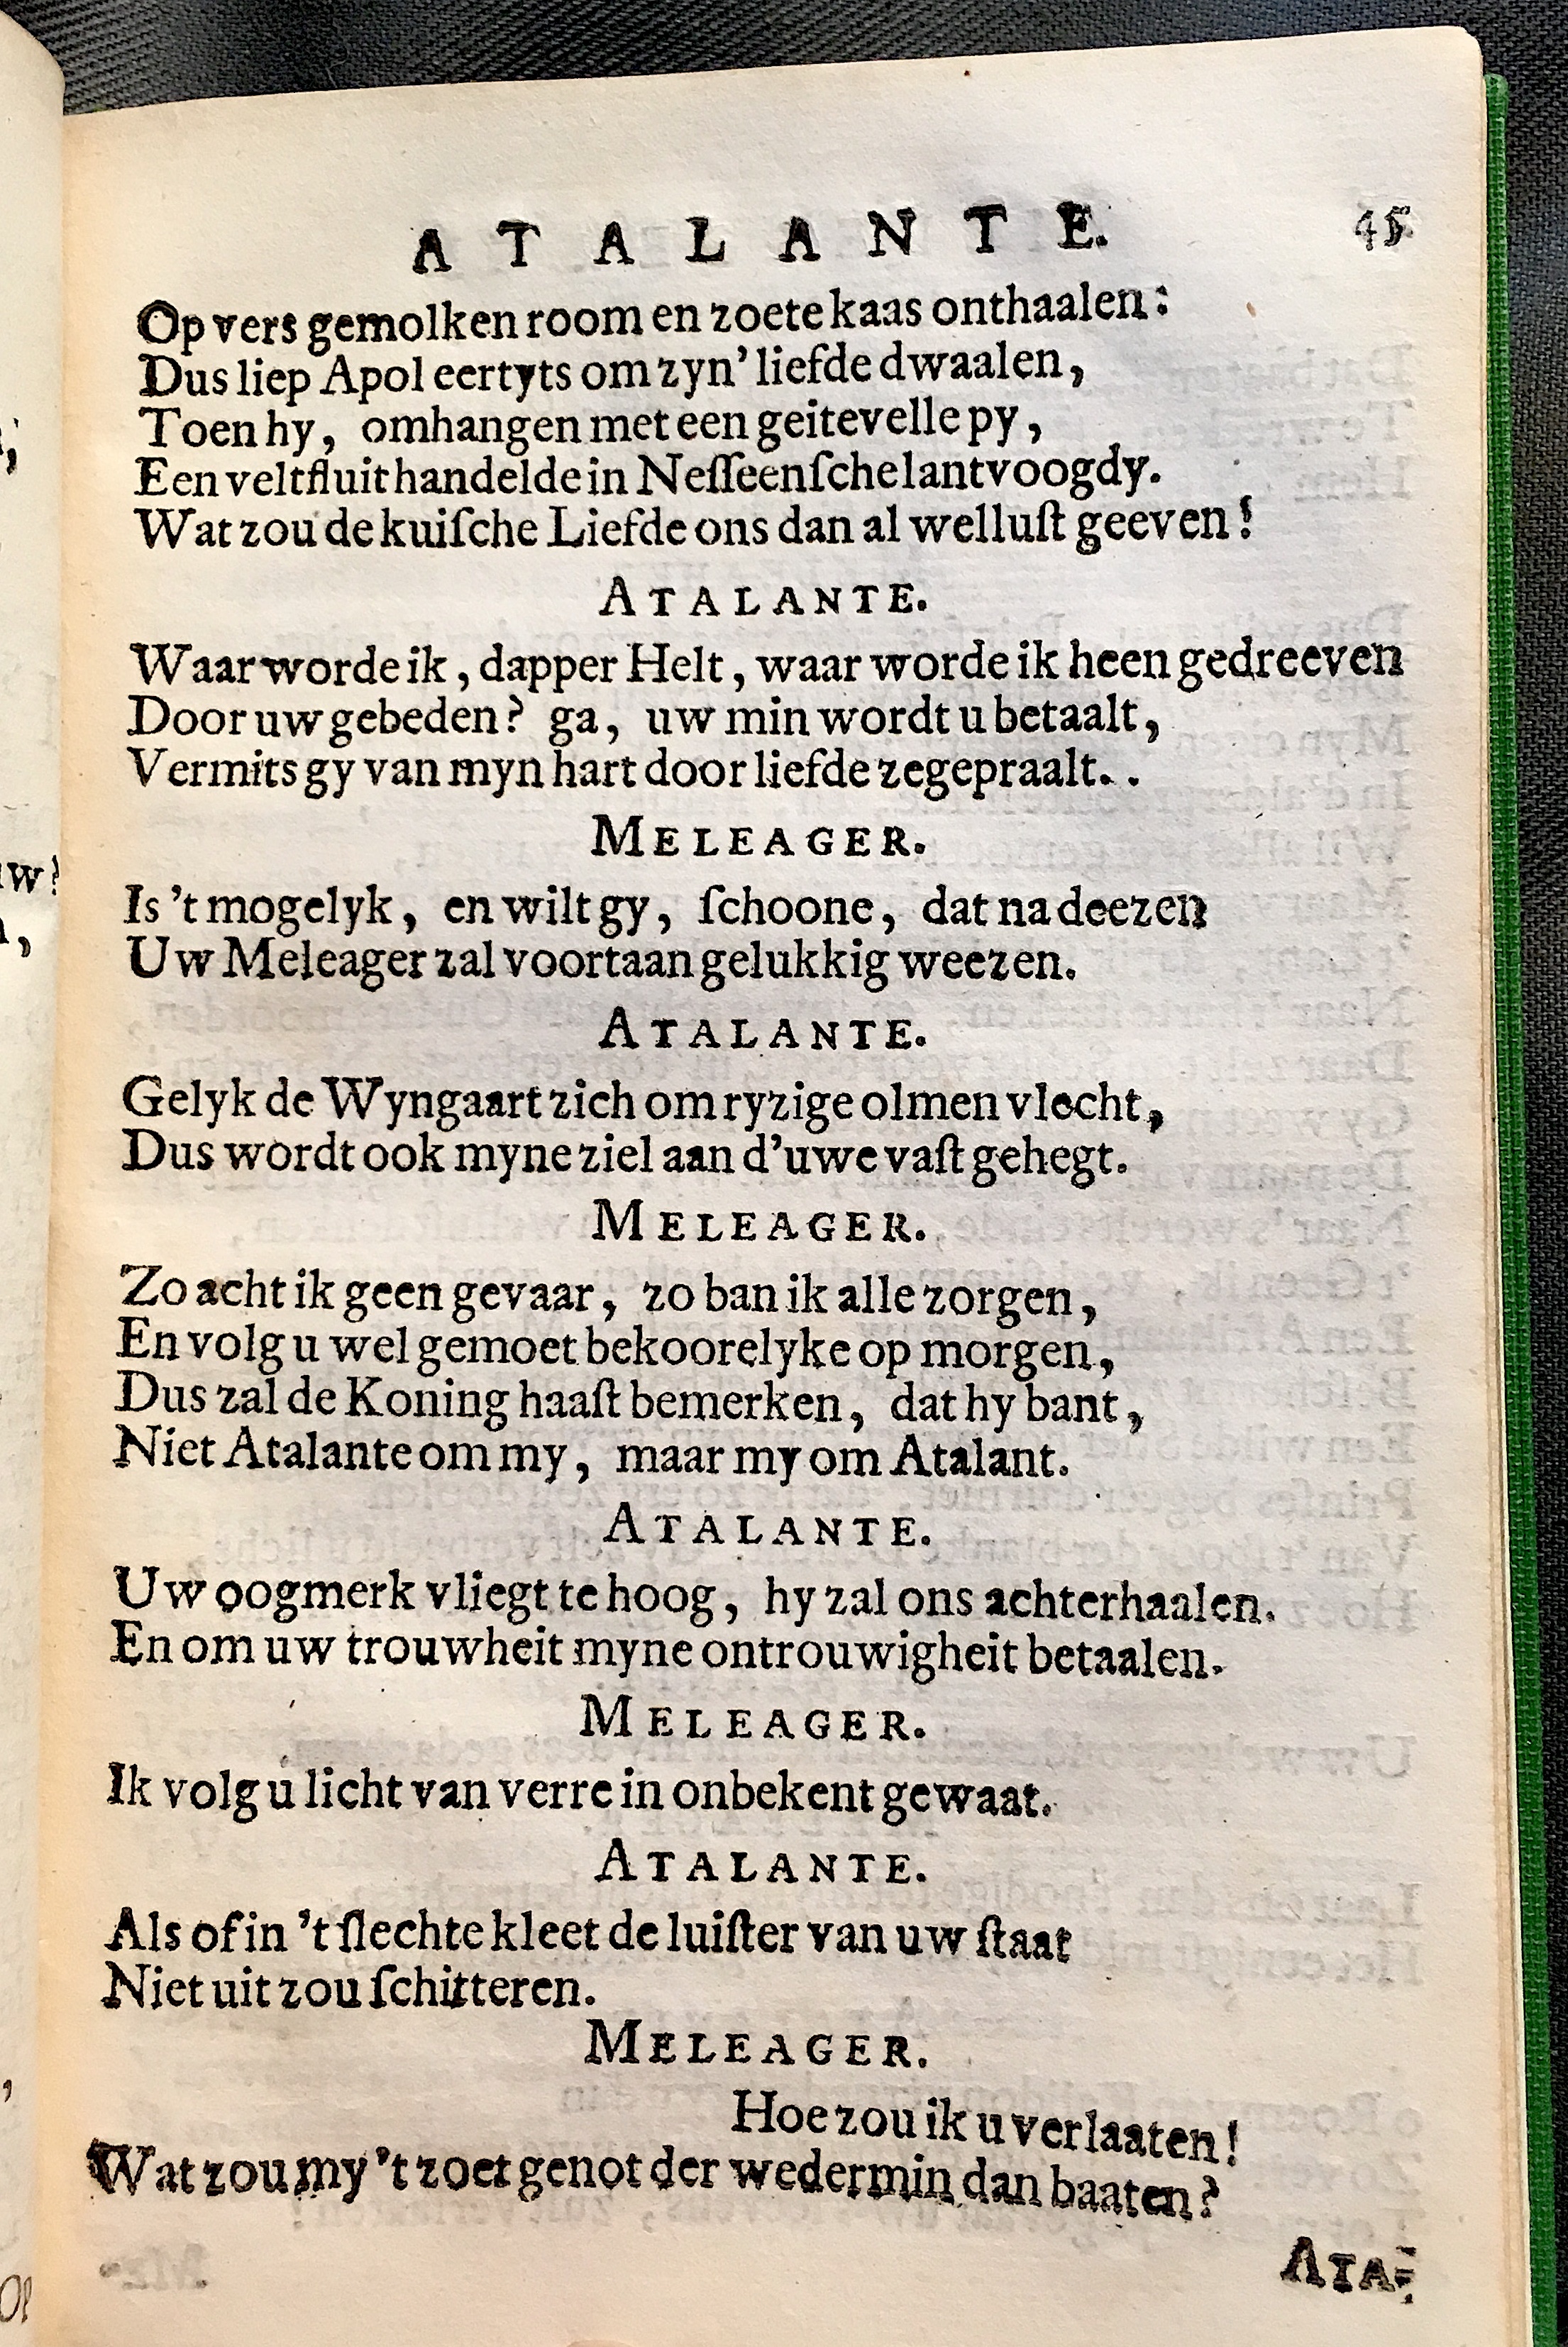 ATALANTE. 45
Op vers gemolken room en zoete kaas onthaalen:
Dus liep Apol eertyts om zyn' liefde dwaalen,
Toen hy, omhangen met een geitevelle py,
Een veltfluit handelde in Neſſeenſche lantvoogdy.
Wat zou de kuiſche Liefde ons dan al welluſt geeven!
ATALANTE.
Waar worde ik, dapper Helt, waar worde ik heen gedreeven
Door uw gebeden? ga, uw min wordt u betaalt,
Vermits gy van myn hart door liefde zegepraalt..
MELEAGER.
Is 't mogelyk, en wilt gy, ſchoone, dat na deezen
Uw Meleager zal voortaan gelukkig weezen.
ATALANTE.
Gelyk de Wyngaart zich om ryzige olmen vlecht,
Dus wordt ook myne ziel aan d'uwe vaſt gehegt.
MELEAGER.
Zo acht ik geen gevaar, zo ban ik alle zorgen,
En volg u wel gemoet bekoorelyke op morgen,
Dus zal de Koning haaſt bemerken, dat hy bant,
Niet Atalante om my, maar my om Atalant.
ATALANTE.
Uw oogmerk vliegt te hoog, hy zal ons achterhaalen.
En om uw trouwheit myne ontrouwigheit betaalen.
MELEAGER.
Ik volg u licht van verre in onbekent gewaat.
ATALANTE.
Als of in 't ſlechte kleet de luiſter van uw ſtaat
Niet uit zou ſchitteren.
MELEAGER.
Hoe zou ik u verlaaten!
Wat zou my 't zoet genot der wedermin dan baaten?
ATA-